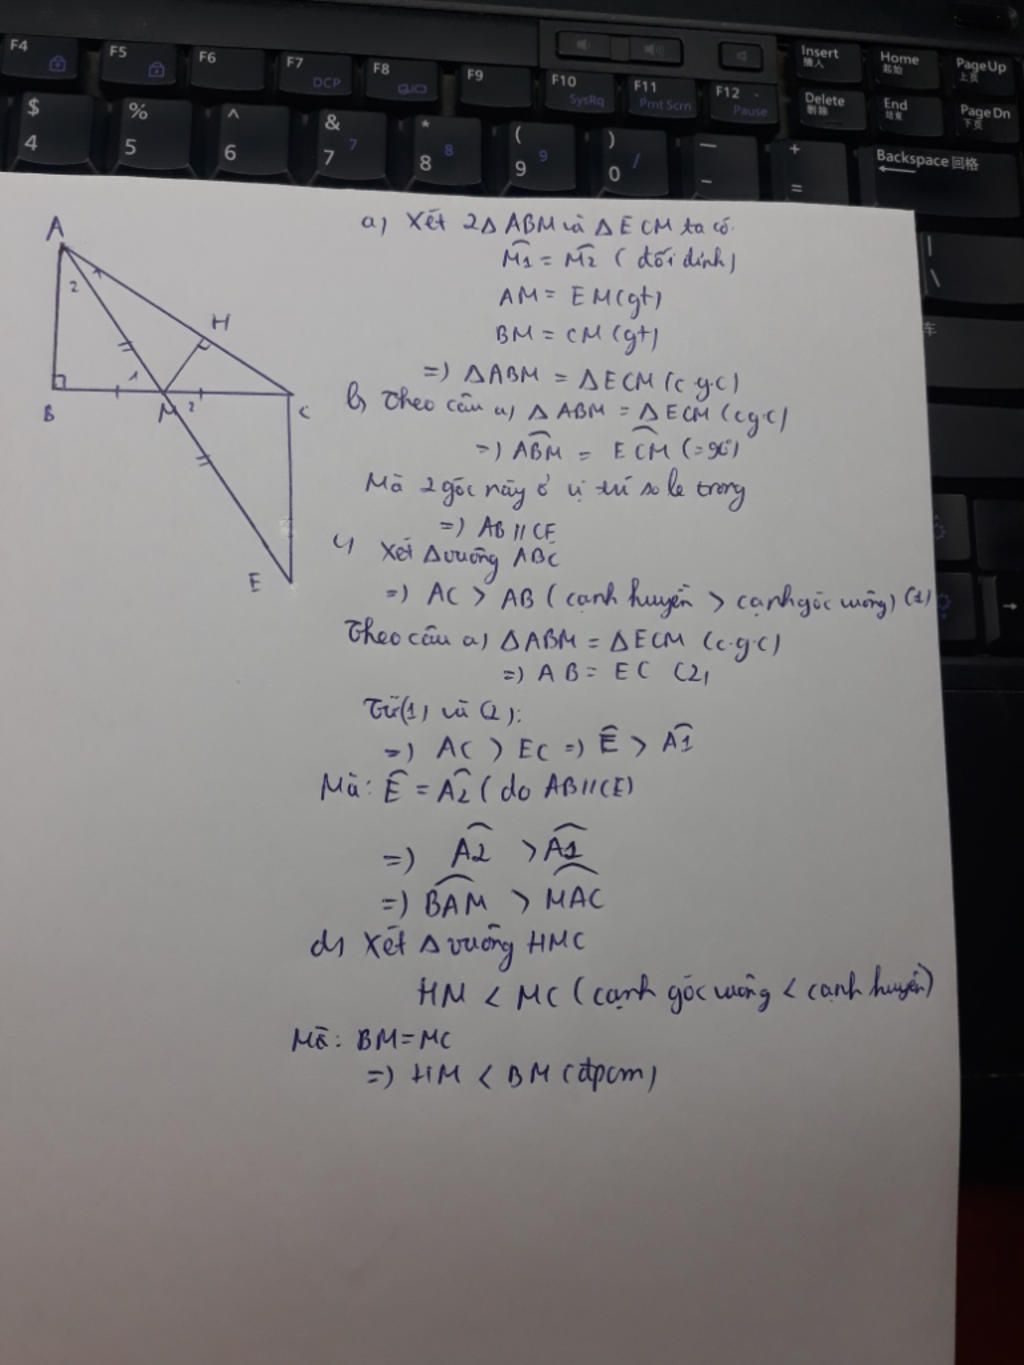 F4
F5
F6
F7
DCP
F8
F9
F10
SysRq
F11
Prnt Scrn
F12
Pause
Insert
插入
Home
起始
PageUp
上页
Delete
删除
End
结束
PageDn
下页
$
4
%
5
^
6
&
7 7
*
8 8
(
9 9
)
0 /
—
-
+
=
Backspace 回格
|
\
车
A
2
H
1
B
M
2
C
E
a) Xét 2Δ ABM và Δ ECM ta có
M1 = M2 ( đối đỉnh)
AM = EM (gt)
BM = CM (gt)
=) ΔABM = ΔECM (c.g.c)
b) Theo câu a) Δ ABM = Δ ECM (cgc)
=) ABM = ECM (=90°)
Mà 2 góc này ở vị trí so le trong
=) AB // CE
c) Xét Δ vuông ABC
=) AC > AB ( cạnh huyền > cạnh góc vuông) (1)
Theo câu a) ΔABM = ΔECM (c.g.c)
=) AB = EC (2)
Từ (1) và (2):
=) AC > EC =) E > A1
Mà: E = A2 ( do AB // CE)
=) A2 > A1
=) BAM > MAC
d) Xét Δ vuông HMC
HM < MC ( cạnh góc vuông < cạnh huyền)
Mà: BM = MC
=) HM < BM (đpcm)